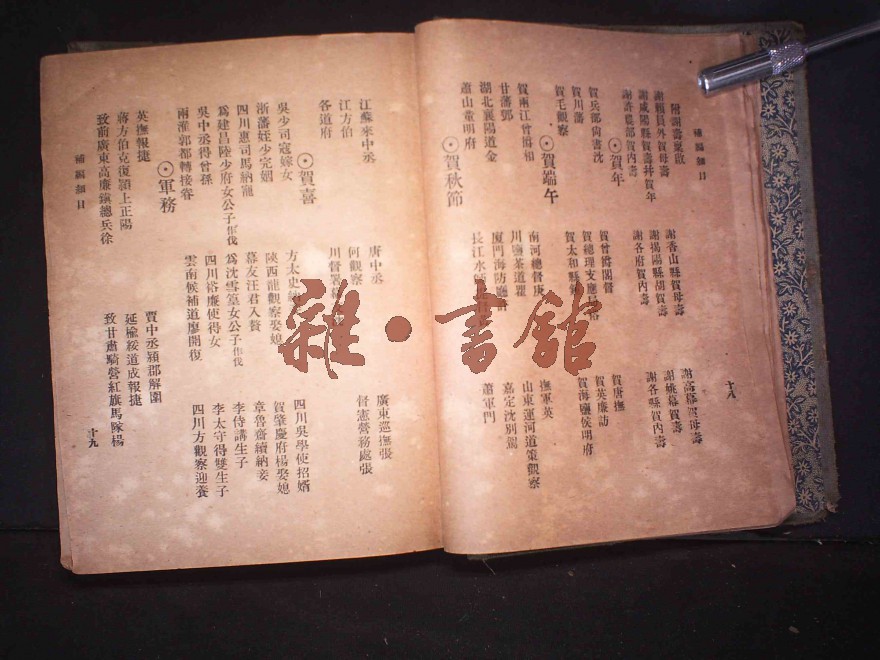 補編細目
十八
附謝壽稟啟
謝賴員外賀母壽
謝香山縣賀母壽
謝高幕賀母壽
謝咸陽縣賀壽幷賀年
謝揭陽縣胡賀壽
謝姚幕賀壽
謝許農部賀內壽
謝各府賀內壽
謝各縣賀內壽
⊙賀年
賀兵部尙書沈
賀曾爵閣督
賀唐撫
賀川藩
賀總理支應局
賀英廉訪
賀毛觀察
賀太和縣
賀海鹽侯明府
⊙賀端午
賀兩江曾爵相
南河總督庚
撫軍英
甘藩鄧
川鹽茶道瞿
山東運河道策觀察
湖北襄陽道金
廈門海防廳
嘉定沈別駕
蕭山童明府
長江水師
蕭軍門
⊙賀秋節
江蘇來中丞
唐中丞
廣東巡撫張
江方伯
何觀察
督憲營務處張
各道府
川督
⊙賀喜
吳少司寇嫁女
方太史
四川吳學使招婿
浙藩姪少完姻
陝西龍觀察娶媳
賀肇慶府楊娶媳
四川惠司馬納寵
幕友汪君入贅
章魯齋續納妾
爲建昌陸少府女公子作伐
爲沈雪篁女公子作伐
李侍講生子
吳中丞得曾孫
四川洛廉使得女
李太守得雙生子
兩淮郭都轉接眷
雲南候補道廖開復
四川方觀察迎養
⊙軍務
英撫報捷
賈中丞潁郡解圍
蔣方伯克復潁上正陽
延楡綏道成報捷
致前廣東高廉鎭總兵徐
致甘肅騎營紅旗馬隊楊
補編細目
十九
雜·書館